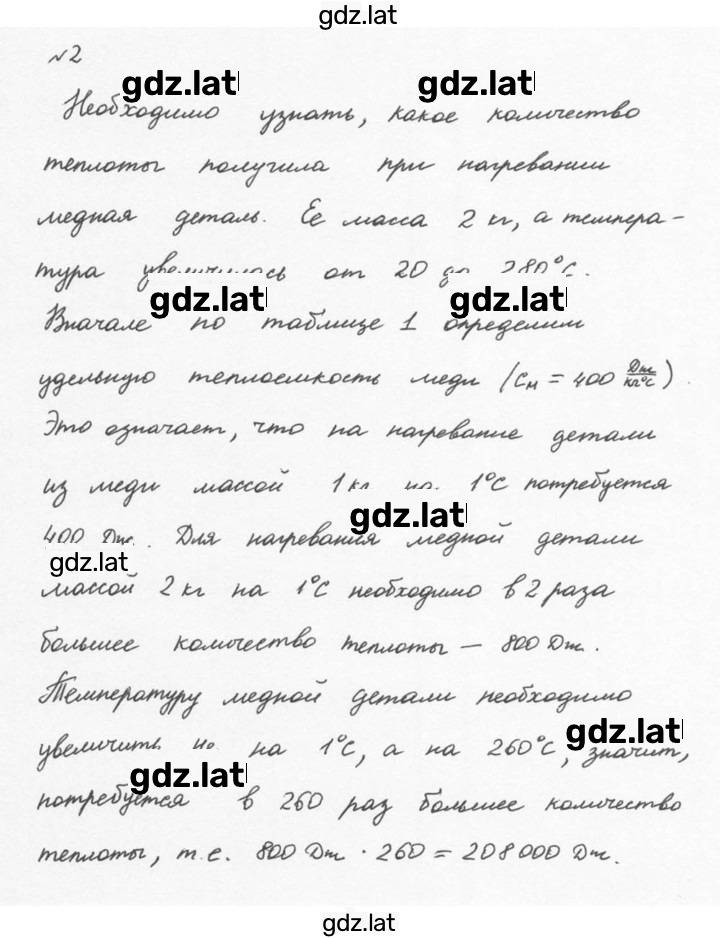 gdz.lat
№2
gdz.lat gdz.lat
Необходимо узнать, какое количество
теплоты получила при нагревании
медная деталь. Ее масса 2 кг, а темпера-
тура увеличилась от 20 до 280°C.
gdz.lat gdz.lat
Вначале по таблице 1 определим
удельную теплоемкость меди (cм = 400 Дж/кг°C).
Это означает, что на нагревание детали
из меди массой 1 кг на 1°C потребуется
gdz.lat
400 Дж. Для нагревания медной детали
gdz.lat
массой 2 кг на 1°C необходимо в 2 раза
большее количество теплоты – 800 Дж.
Температуру медной детали необходимо
gdz.lat
увеличить не на 1°C, а на 260°C, значит,
gdz.lat
потребуется в 260 раз большее количество
теплоты, т.е. 800 Дж · 260 = 208000 Дж.
gdz.lat